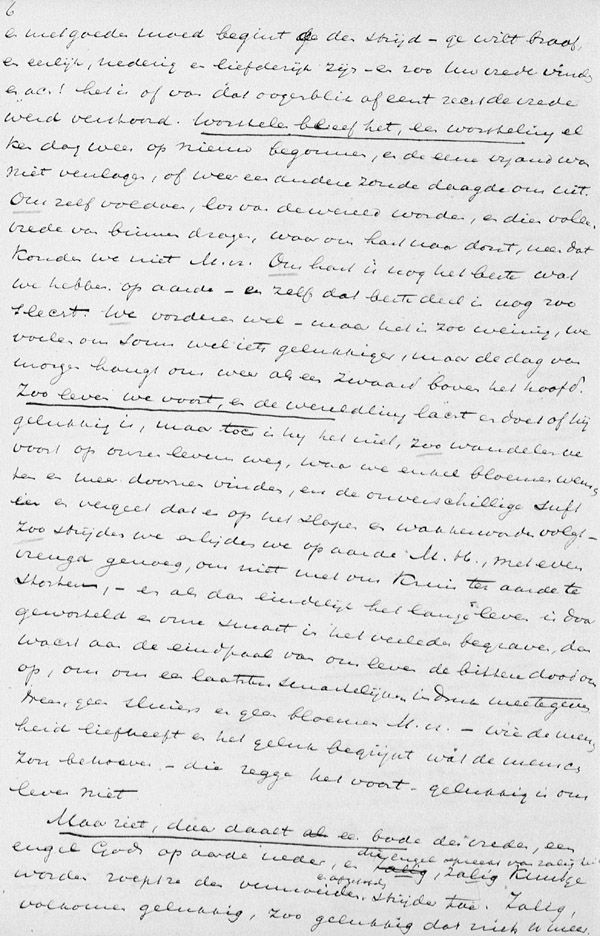 6
en met goeden moed begint ge den strijd – ge wilt braaf,
en eerlijk, nederig en liefderijk zijn – en zoo Uw vrede vinden
en ac! het is of van dat oogenblik af eent recht de vrede
werd verstoord. Worstelen bleef het, een worsteling el
ken dag weer op nieuw begonnen, en de eene vyand was
niet verslagen, of weer een andere zonde daagde ons uit.
Ons zelf voldoen, los van de wereld worden, en dien vollen
vrede van binnen dragen, waar ons hart naar dorst, neen dat
konden we niet M.H. Ons hart is nog het beste wat
we hebben op aarde – en zelf dat beste deel is nog zoo
slecht. We vorderen wel – maar het is zoo weinig, we
voelen ons soms wel iets gelukkiger, maar de dag van
morgen hangt ons weer als een zwaard boven het hoofd.
Zoo leven we voort, en de wereldling lacht en doet of hij
gelukkig is, maar toch is hy het niet, Zoo wandelen we
voort op onzen levens weg, waar we enkel bloemen wensch
ten en meer doornen vinden, en de onverschillige suft
en vergeet dat er op het slapen en wakker worden volgt –
Zoo strijden we en lijden we op aarde M.H., met even
vreugd genoeg, om niet met ons kruis ter aarde te
storten, – en als dan eindelijk het lange leven is door
geworsteld en onze smart in het verleden begraven, dan
wacht aan de eindpaal van ons leven de bitt'ren dood ons
op, om ons een laatsten smartelijken indruk mee te geven
Neen, geen sluiers en geen bloemen M.H. – wie de mensch
heid liefheeft en het geluk begrijpt wat de mensch
zou behoeven – die zegge het voort – gelukkig is ons
leven niet
Maar ziet, daar daalt een bode des vredes, een
engel Gods op aarde neder, en die engel spreekt van zalig
zalig, zalig kunt ge
worden roept ze den vermoeiden strijder toe. Zalig,
volkomen gelukkig, zoo gelukkig dat niets U meer